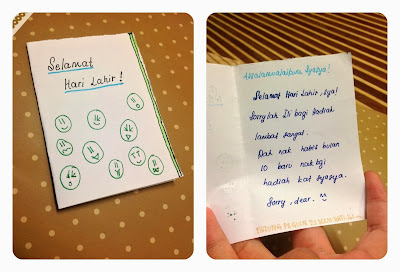 Selamat
Hari Lahir!
Assalamualaikum Syasya!
Selamat Hari Lahir, sya!
Sorrylah Di bagi hadiah
lambat sangat.
Dah nak habis bulan
10 baru nak bgi
hadiah kat syasya.
Sorry, dear.